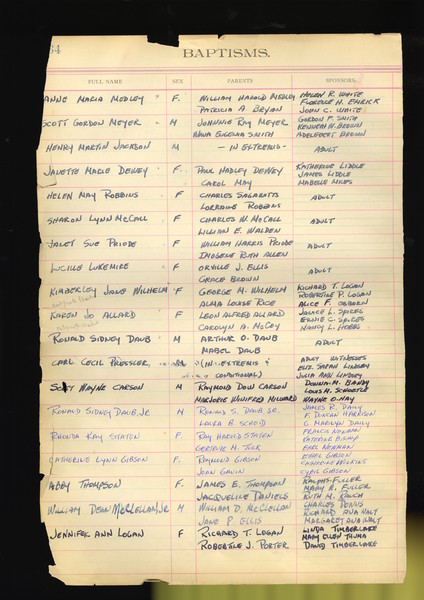 34
BAPTISMS.
FULL NAME SEX PARENTS SPONSORS
ANNE MARIA MEDLEY F. WILLIAM HAROLD MEDLEY HELEN R. WHITE
PATRICIA A. BRYAN FLORENCE H. EMRICK
JOHN C. WHITE
SCOTT GORDON MEYER M JOHNNIE RAY MEYER GORDON F. SMITH
NINA EUGENIA SMITH KENNETH W. BROWN
ADELBERT BROWN
HENRY MARTIN JACKSON M — IN EXTREMIS — ADULT
JANETTE MARIE DEWEY F. PAUL HADLEY DEWEY KATHERINE LIDDLE
CAROL MAY JAMES LIDDLE
MABELLE
HELEN MAY ROBBINS F CHARLES ADULT
LORRAINE ROBBINS
SHARON LYNN MCCALL F CHARLES W. MCCALL ADULT
LILLIAN E. WALDEN
JANET SUE PRIODE F WILLIAM HARRIS PRIODE ADULT
IMOGENE RUTH ALLEN
LUCILLE LUKEMIRE F ORVILLE J. ELLIS ADULT
GRACE BROWN
KIMBERLEY JANE WILHELM F GEORGE M. WILHELM RICHARD T. LOGAN
ALMA LOUISE RICE ROBERTINE P. LOGAN
ALICE F. OSBORN
KAREN JO ALLARD F LEON ALFRED ALLARD JANICE L. SPIRES
CAROLYN A. MCCOY ERNIE C. SPIRES
NANCY L. HOBBS
RONALD SIDNEY DAUB M ARTHUR O. DAUB ADULT
MABEL DAUB
CARL CECIL PRESSLER M (IN EXTREMIS ADULT WITNESSES
CONDITIONAL) ELIZ. SEFAN LINDSEY
JULIA ANN LINDSEY
SCOTT WAYNE CARSON M RAYMOND DOW CARSON DONNIA M. BANDY
MARJORIE WINIFRED MILLWARD LOUIS M. SCHOETTLE
WAYNE O. HAY
RONALD SIDNEY DAUB, JR. M RONALD S. DAUB SR. JAMES R. DAILY
LAURA B. SCHEID F. DUNCAN HARRISON
C. MARILYN DAILY
RHONDA KAY STATEN F. ROY HAROLD STATEN FRANCIS NEWMAN
GERTRUE M. TUCK KATERINE
EARL NEWMAN
CATHERINE LYNN GIBSON F. RAYMOND GIBSON ETHEL GIBSON
JOAN GAVIN CATHERINE WILKINS
CYRIL GIBSON
ABBY THOMPSON F. JAMES E. THOMPSON RALPH S. FULLER
JACQUELINE DANIELS MARY R. FULLER
RUTH M. ROUCH
WILLIAM DEAN MCCLELLAN, JR M WILLIAM D. MCCLELLAN CHARLES DENNIS
JANE P. ELLIS RICHARD ANAWALT
MARGARET ANAWALT
JENNIFER ANN LOGAN F RICHARD T. LOGAN LINDA TIMBERLAKE
ROBERTINE J. PORTER MARY ELLEN THUMA
DAVID TIMBERLAKE